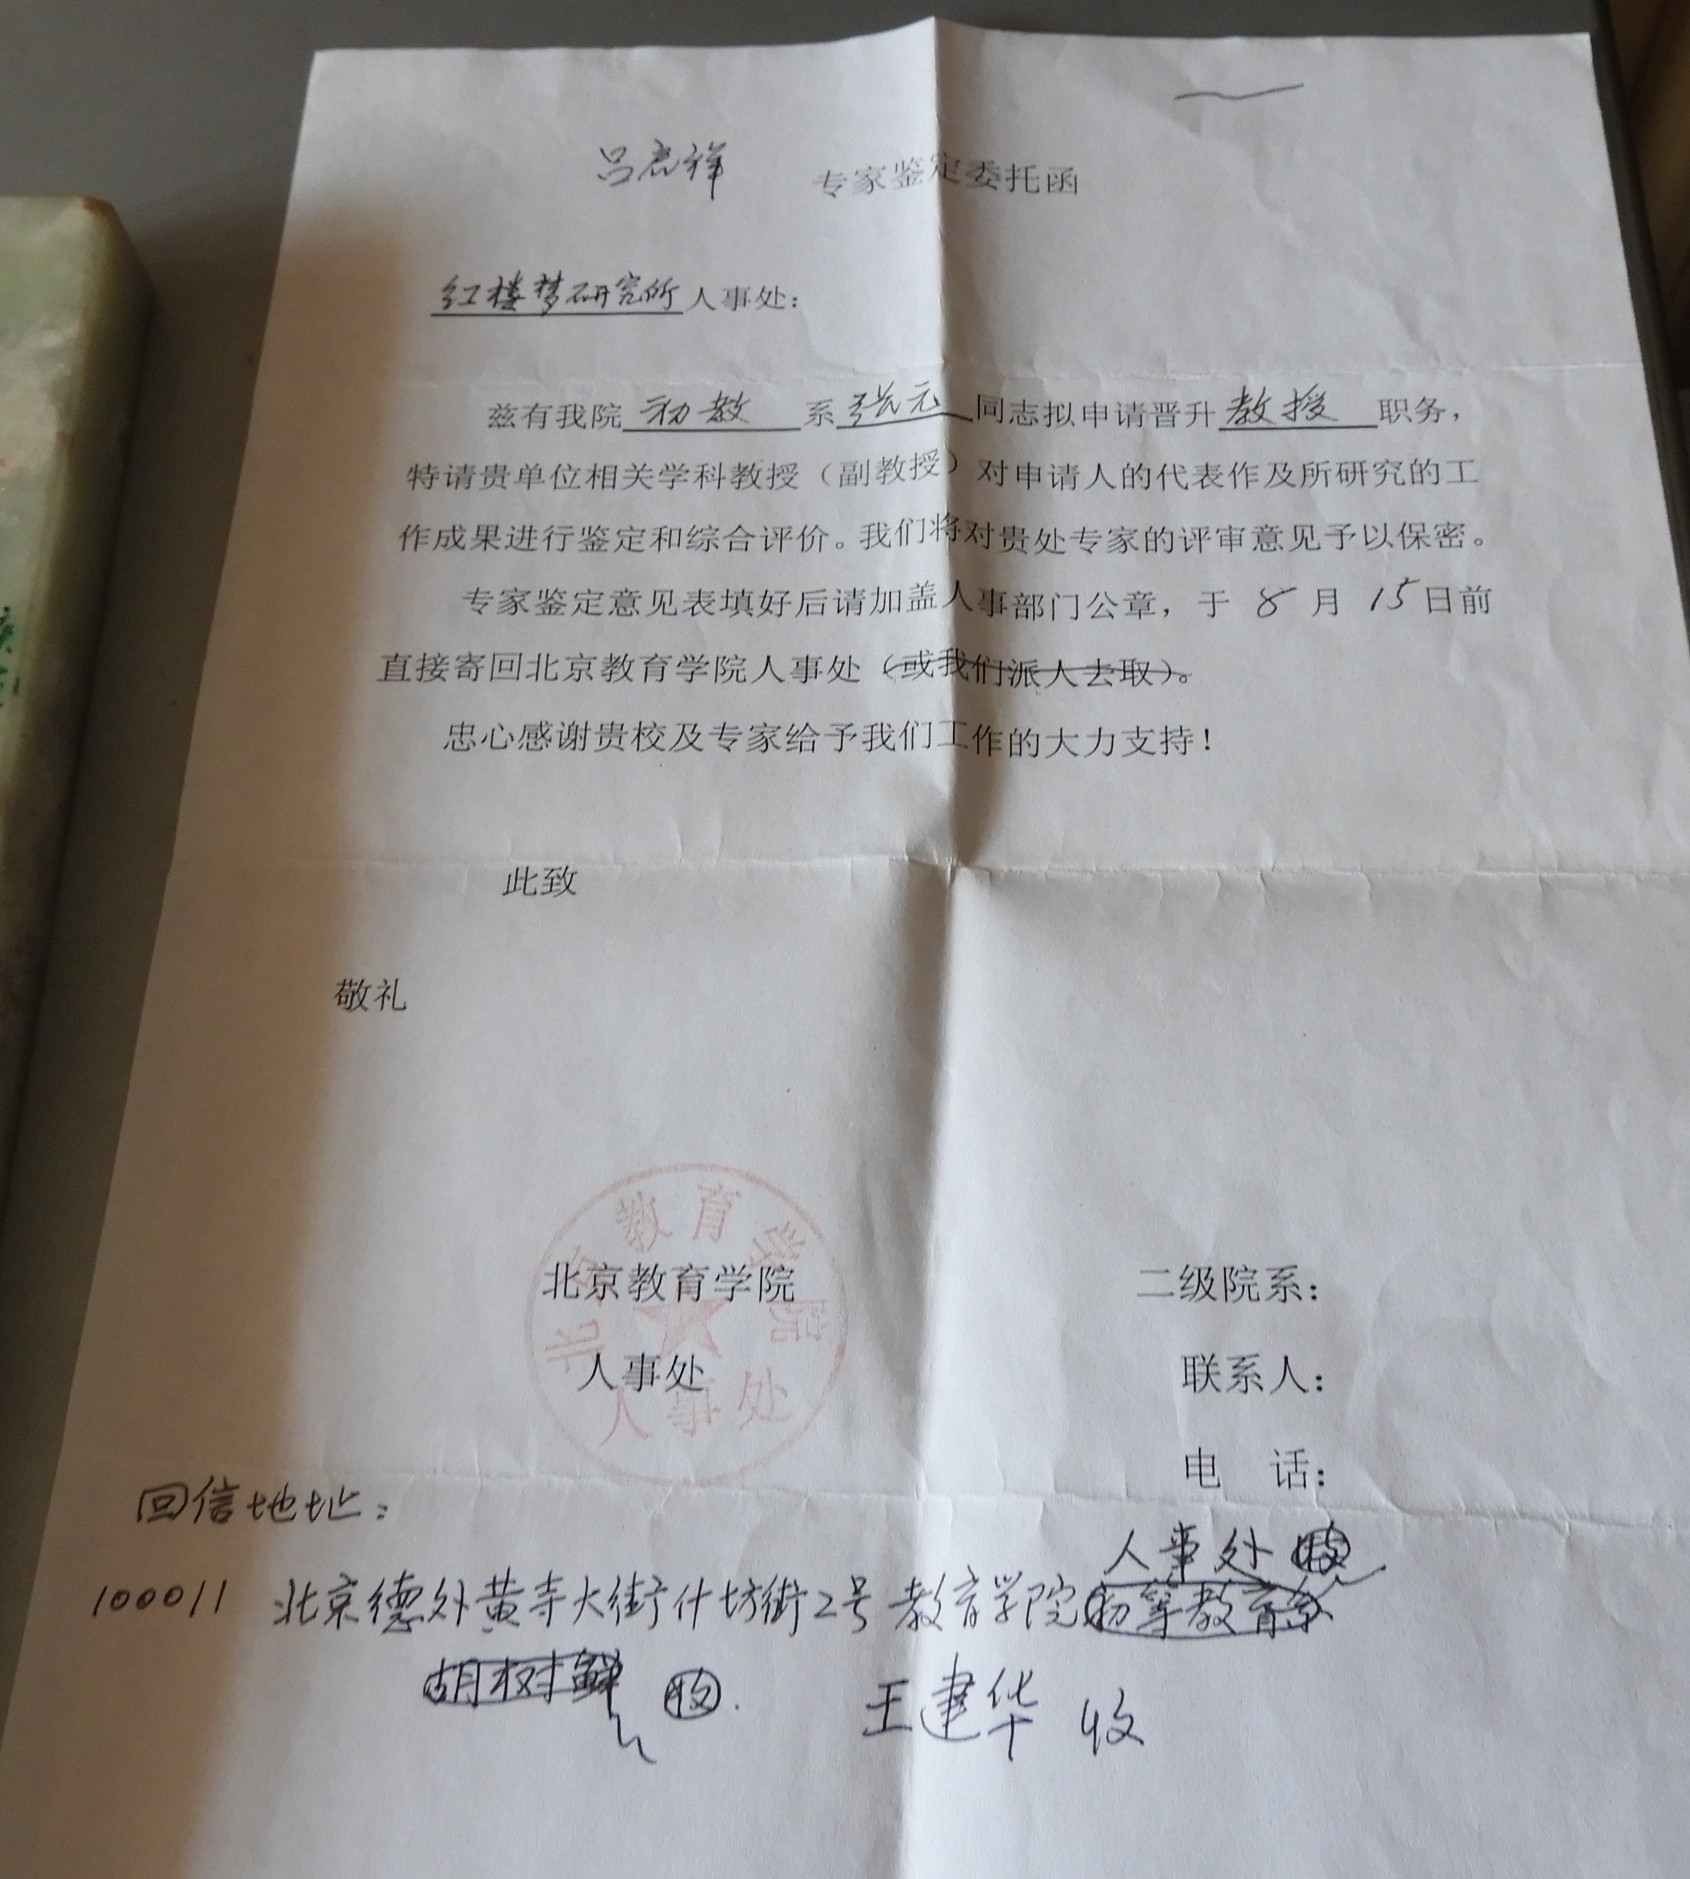 吕启祥 专家鉴定委托函
红楼梦研究所人事处：
兹有我院 初教 系 张元 同志拟申请晋升 教授 职务，
特请贵单位相关学科教授（副教授）对申请人的代表作及所研究的工
作成果进行鉴定和综合评价。我们将对贵处专家的评审意见予以保密。
专家鉴定意见表填好后请加盖人事部门公章，于 8 月 15 日前
直接寄回北京教育学院人事处（或我们派人去取）。
忠心感谢贵校及专家给予我们工作的大力支持！
此致
敬礼
北京教育学院
人事处
北京教育学院
人事处
二级院系：
联系人：
电 话：
回信地址：
人事处 收
100011 北京德外黄寺大街什坊街2号 教育学院初等教育系
胡树鲜 收. 王建华 收